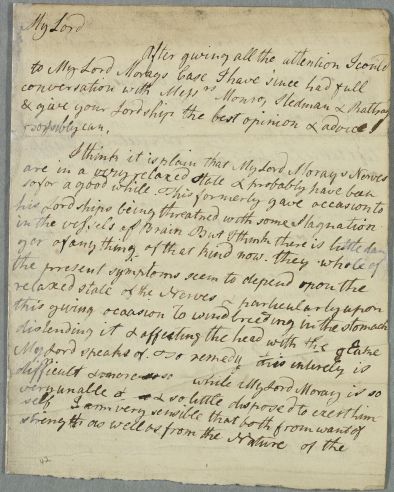 My Lord
After giving all the attention I could
to My Lord Morays Case I have since had full
conversation with Mess.rs Monro, Sledman & Rathray
& give your Lordship the best opinion & advice I
possibly can.
I think it is plain that My Lord Morays Nerves
are in a very relaxed state & probably have been
so for a good while. This formerly gave occasion to
his Lordships being threatned with some Stagnation
in the vessels of Brain But I think there is little dan
ger of anything of that kind now. they whole of
the present symptoms seem to depend upon the
relaxed state of the Nerves & particularly upon
this giving occasion to wind breeding in the stomach
distending it & affecting the head with the
My Lord speaks of. To remedy this intirely is
difficult & more so while My Lord Moray is so
very unable & so little disposed to exert him
self I am very sensible that both from want of
strength as well as from the Nature of the